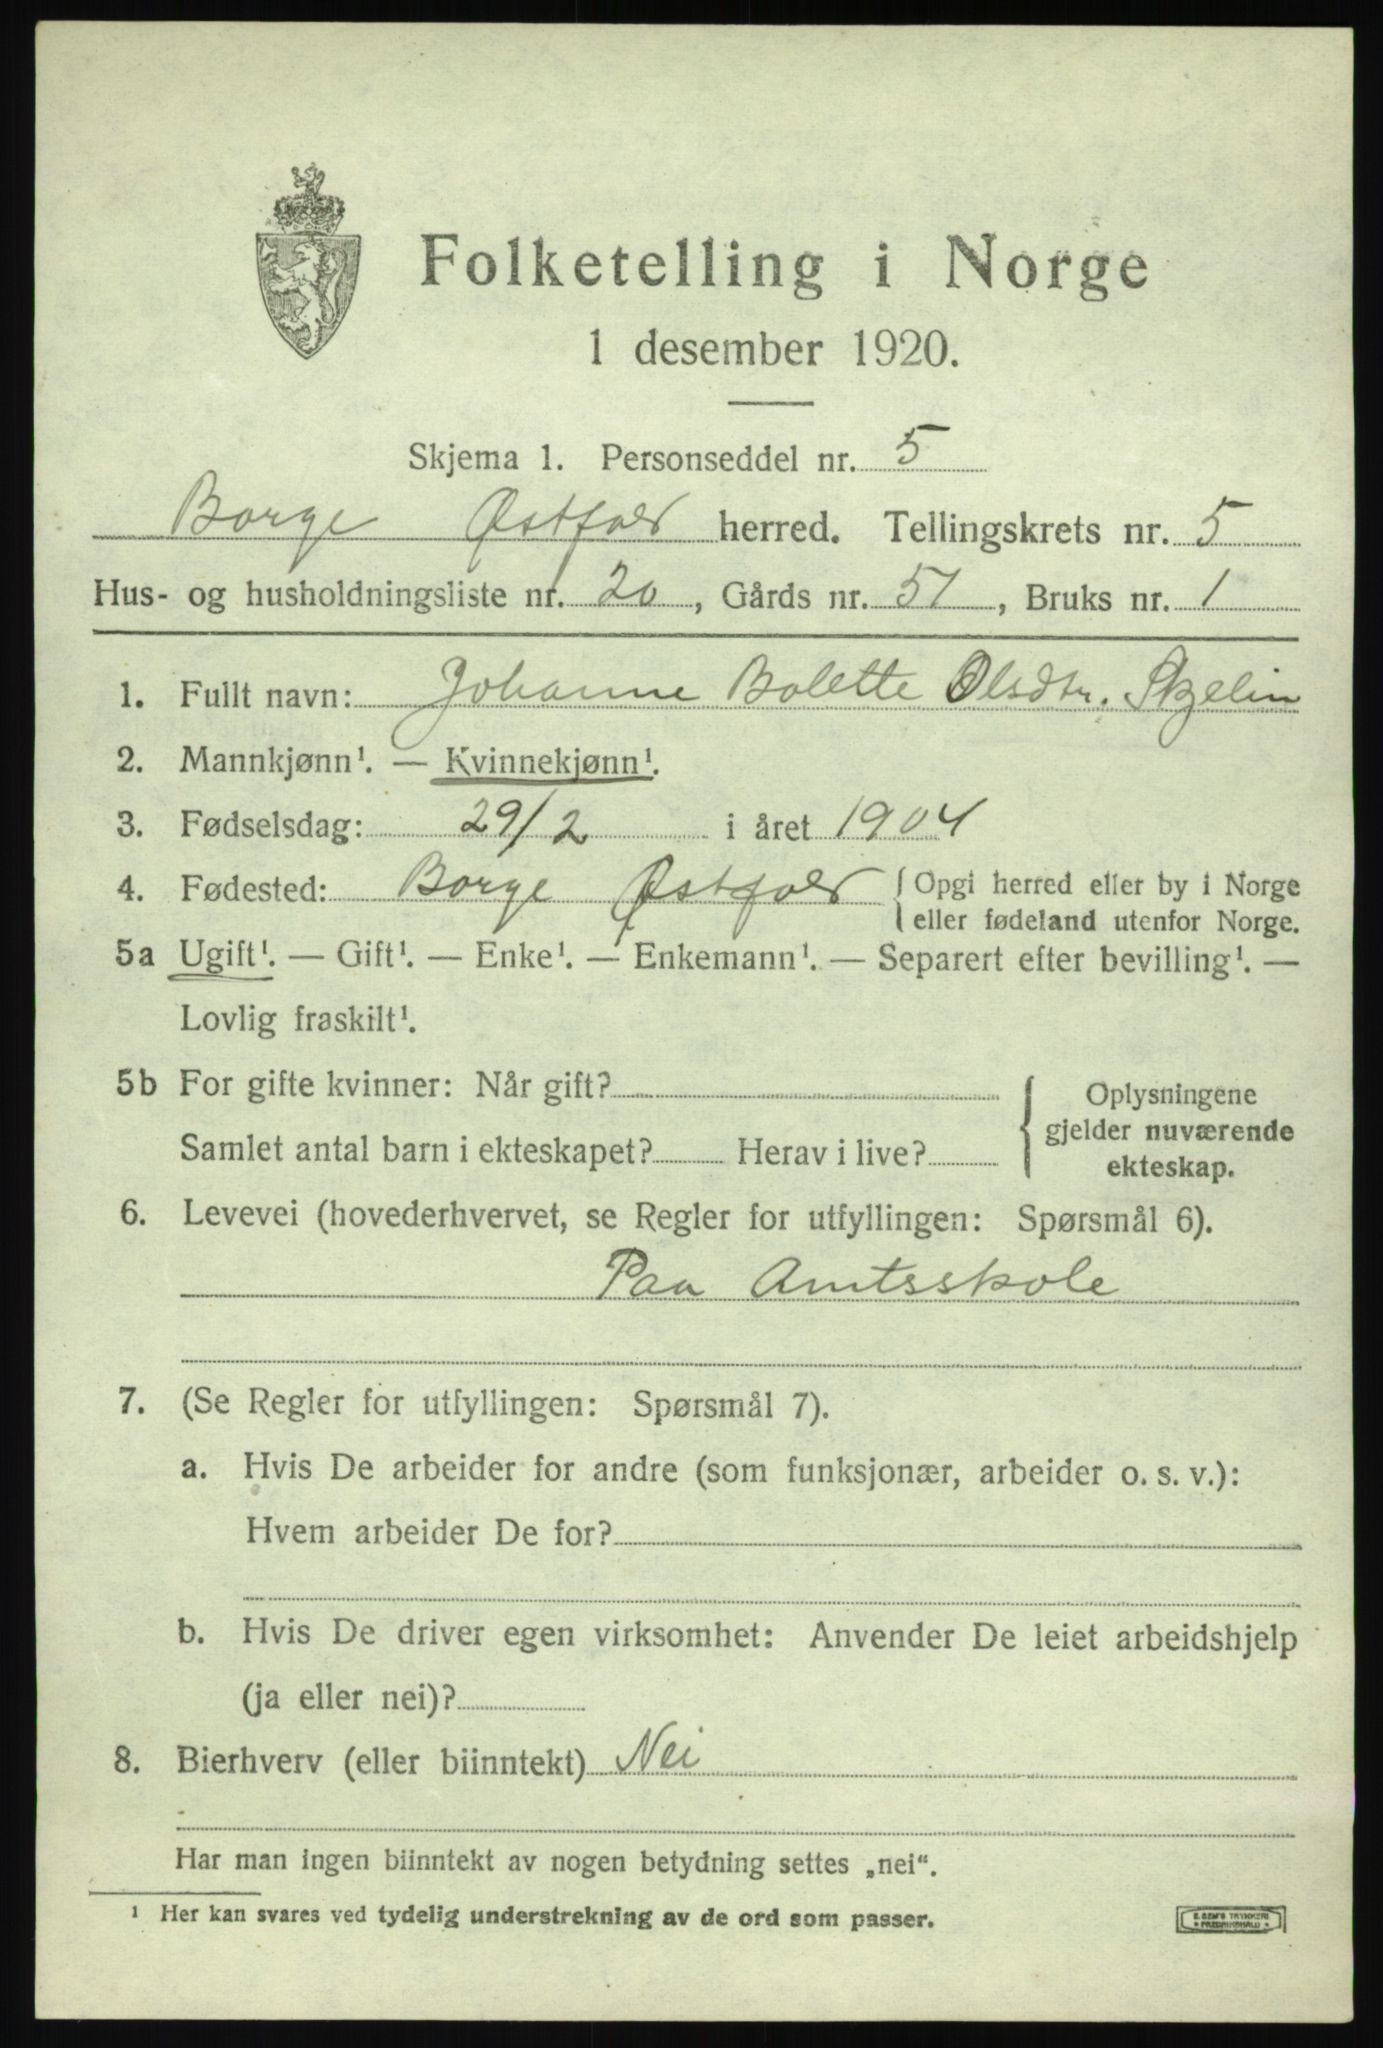 Folketelling i Norge
1 desember 1920.
Skjema 1. Personseddel nr. 5
Borge Østfold herred. Tellingskrets nr. 5
Hus- og husholdningsliste nr. 20, Gårds nr. 51, Bruks nr. 1
1. Fullt navn: Johanne Bolette Olsdtr. Skjelin
2. Mannkjønn¹. — Kvinnekjønn¹.
3. Fødselsdag: 29/2 i året 1904
4. Fødested: Borge Østfold { Opgi herred eller by i Norge
eller fødeland utenfor Norge.
5a Ugift¹. — Gift¹. — Enke¹. — Enkemann¹. — Separert efter bevilling¹. —
Lovlig fraskilt¹.
5b For gifte kvinner: Når gift?
Samlet antal barn i ekteskapet? Herav i live?
Oplysningene
gjelder nuværende
ekteskap.
6. Levevei (hovederhvervet, se Regler for utfyllingen: Spørsmål 6).
Paa Amtsskole
7. (Se Regler for utfyllingen: Spørsmål 7).
a. Hvis De arbeider for andre (som funksjonær, arbeider o. s. v.):
Hvem arbeider De for?
b. Hvis De driver egen virksomhet: Anvender De leiet arbeidshjelp
(ja eller nei)?
8. Bierhverv (eller biinntekt) Nei
Har man ingen biinntekt av nogen betydning settes „nei“.
¹ Her kan svares ved tydelig understrekning av de ord som passer.